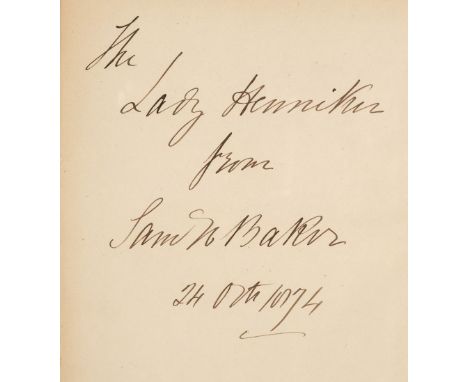 The
Lady Henniker
from
Sam W Baker
24 Octr 1874